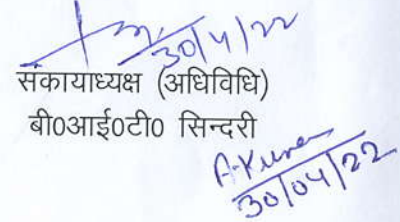 30/4/22
संकायाध्यक्ष (अधिविधि)
बी०आई०टी० सिन्दरी
A.Kumar
30/04/22